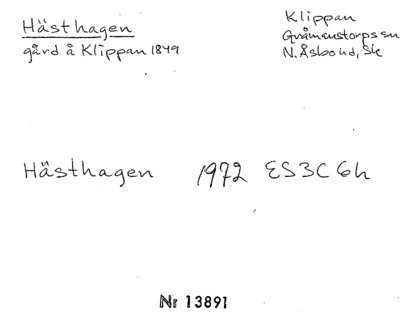 Hästhagen
gård å Klippan 1849
Klippan
Gråmanstorps sn
N. Åsbo hd, Sk
Hästhagen 1972 ES3C6h
Nr 13891